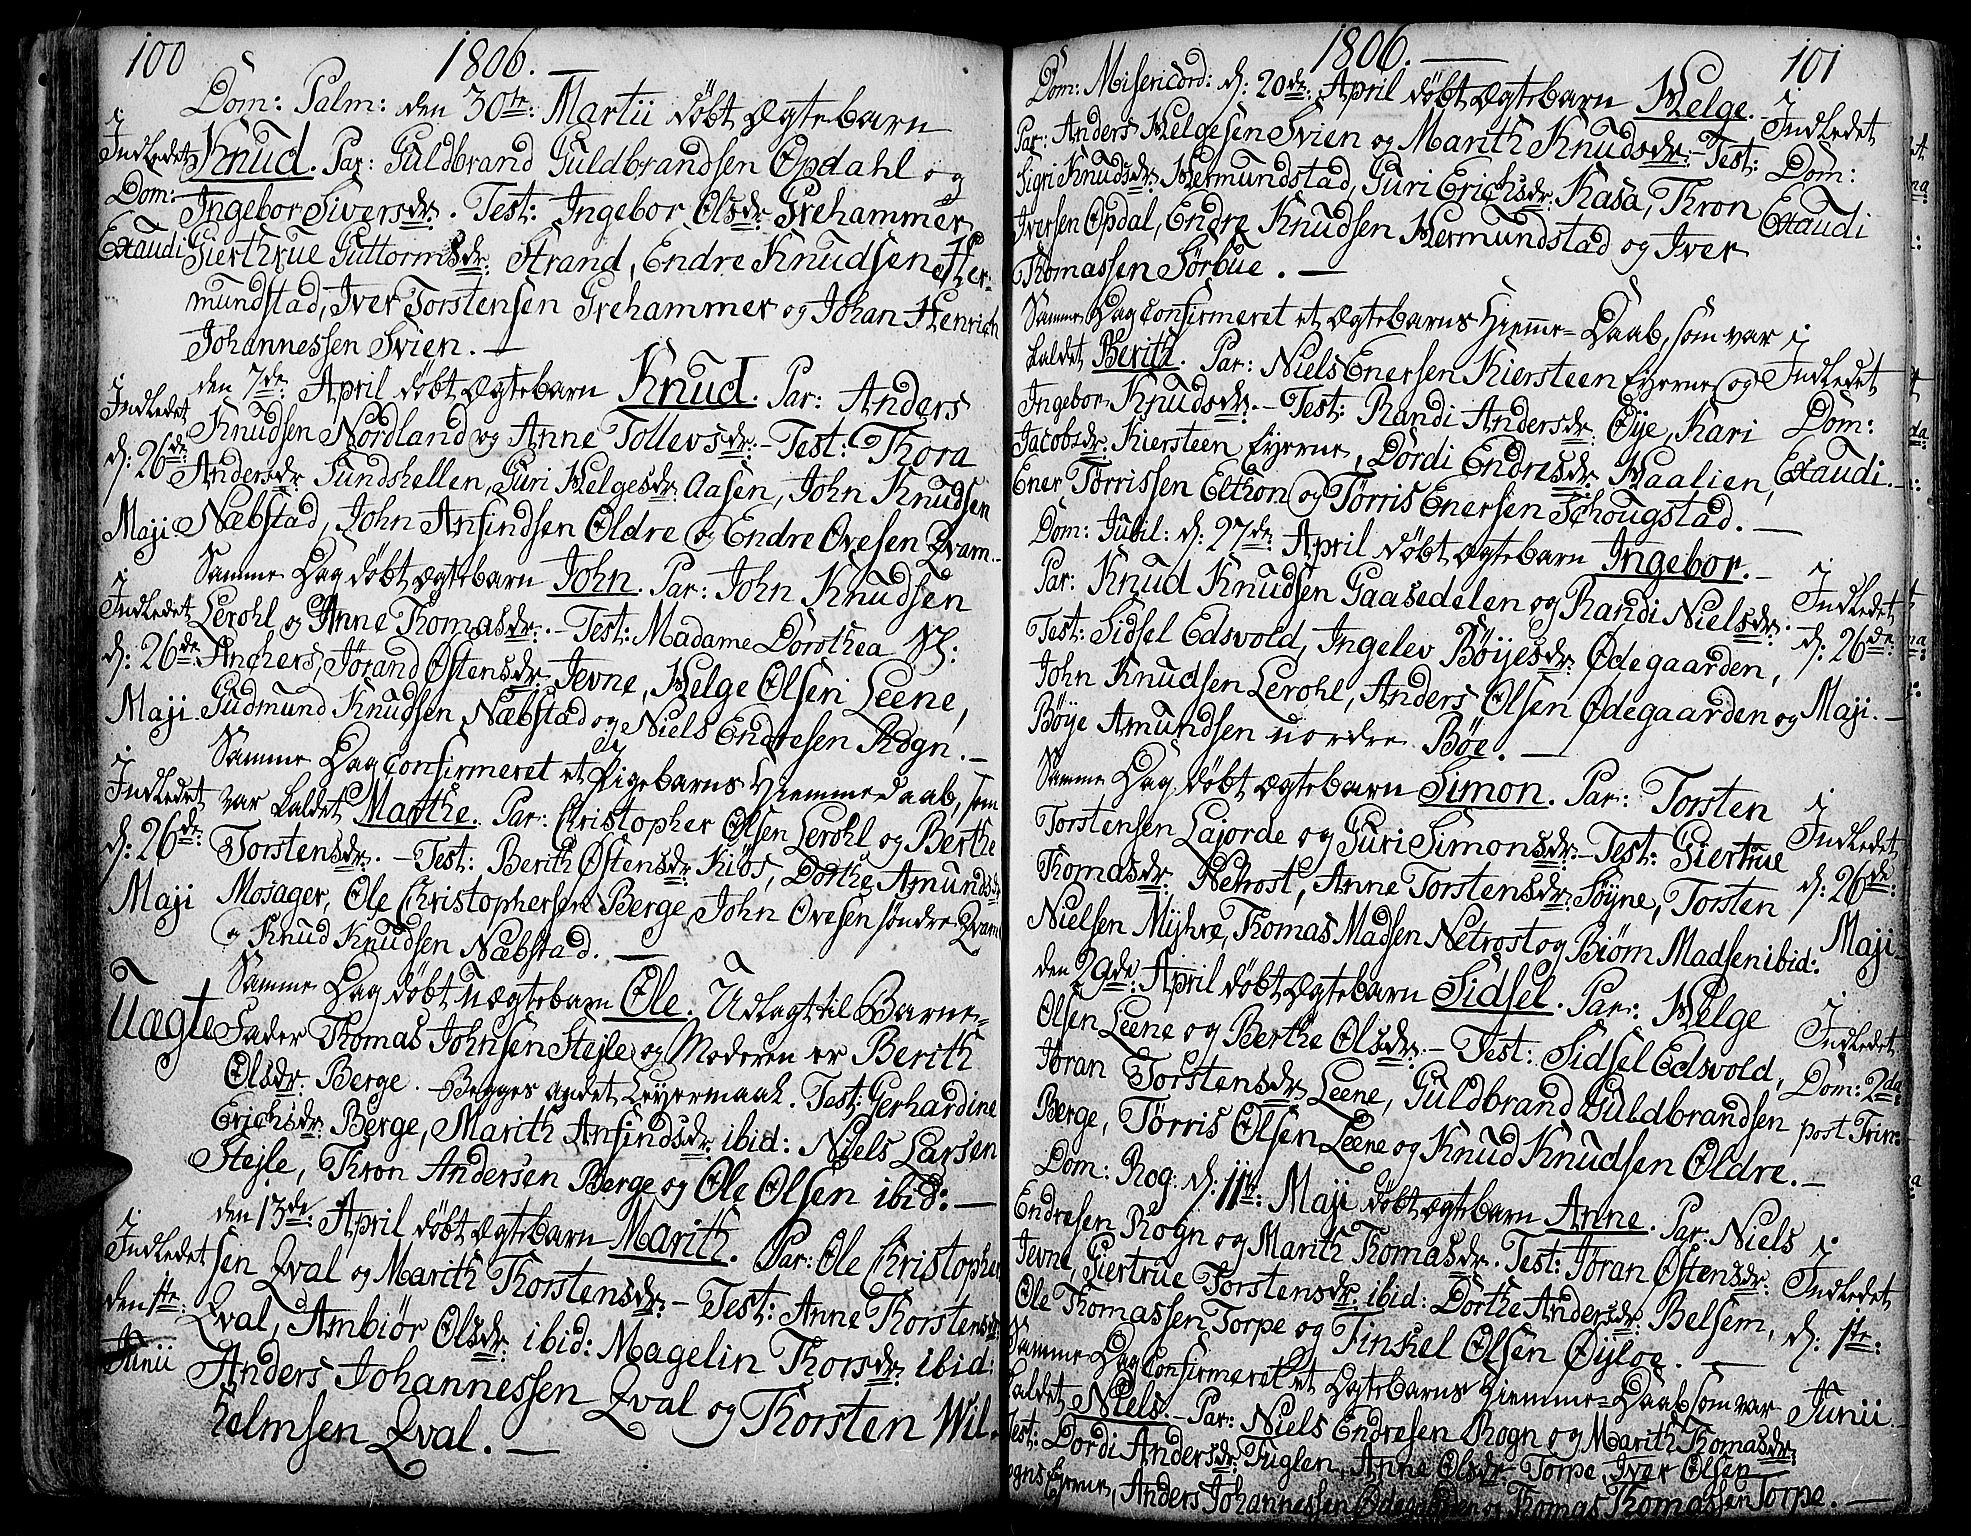 100
1806.
Dom: Palm: den 30te: Martii døbt Ægtebarn
Knud. Par: Guldbrand Guldbrandsen Opdahl og
Ingebor Siversdr. Test: Ingebor Olsdr: Grehammer
Gierthrue Guttormsdr: Strand, Endre Knudsen Her-
mundstad, Iver Torstensen Grehammer og Johan Henrich
Johannessen Svien. —
Indledet
Dom:
Exaudi
den 7de: April døbt Ægtebarn Knud. Par: Anders
Knudsen Nordland og Anne Tollevsdr: - Test: Thora
Andersdr: Sundshellen, Guri Helgesdr: Aasen, John Knudsen
Næbstad, John Anfindsen Oldre og Endre Ovesen Qvam. -
Indledet
d: 26de
Maji
Samme Dag døbt Ægtebarn John. Par: John Knudsen
Lerohl og Anne Thomasdr: - Test: Madame Dorothea Sl:
Anchers, Jørand Østensdr: Jevne, Helge Olsen Leene,
Gudmund Knudsen Næbstad og Niels Endresen Rogn. -
Indledet
d: 26de
Maji
Samme Dag confirmeret et Pigebarns Hiemmedaab, som
var kaldet Marthe. Par: Christopher Olsen Lerohl og Berthe
Torstensdr. - Test: Berith Østensdr: Kiøs, Dorthe Amundsdr
Mosager, Ole Christophersen Berge, John Ovesen søndre Qvam
og Knud Knudsen Næbstad. —
Indledet
d: 26de:
Maji
Samme Dag døbt uægtebarn Ole. Udlagt til Barne-
Fader Thomas Johnsen Stejle og Moderen er Berith
Olsdr: Berge. - Begges andet Leyermaal. Test: Gerhardine
Erichsdr: Berge, Marith Anfindsdr: ibid: Niels Larsen
Stejle, Thron Andersen Berge og Ole Olsen ibid: —
Uægte
den 13de: April døbt Ægtebarn Marith. Par: Ole Christopher
sen Qval og Marith Thorstensdr: - Test: Anne Thorstensdr:
Qval, Ambiør Olsdr: ibid: Magelin Thorsdr: ibid:
Anders Johannessen Qval og Thorsten Wil-
helmsen Qval. —
Indledet
den 1ste:
Junii
1806.
101
Dom: Misericord: d: 20de: April døbt Ægtebarn Helge. -
Par: Anders Helgesen Svien og Marith Knudsdr: - Test:
Sigri Knudsdr: Hermundstad, Guri Erichsdr: Kasa, Thron
Iversen Opdal, Endre Knudsen Hermundstad og Iver
Thomassen Sørbue. —
Indledet
Dom:
Exaudi
Samme Dag confirmeret et Ægtebarns Hiemme-Daab, som var
kaldet Berith. Par: Niels Enersen Kiersteen Eyerne og
Ingebor Knudsdr. - Test: Randi Andersdr: Øye, Kari
Jacobsdr: Kiersteen Eyerne, Dordi Endresdr: Haalien,
Ener Tørrissen Elthon og Tørris Enersen Schougstad. —
Indledet
Dom:
Exaudi. -
Dom: Jubil: d: 27de: April døbt Ægtebarn Ingebor. -
Par: Knud Knudsen Gaasedelen og Randi Nielsdr:
Test: Sidsel Edsvold, Ingelev Bøyesdr: Ødegaarden,
John Knudsen Lerohl, Anders Olsen Ødegaarden og
Bøye Amundsen nordre Bøe. —
Indledet
d: 26de:
Maji. -
Samme Dag døbt Ægtebarn Simon. Par: Torsten
Torstensen Lajorde og Guri Simonsdr: - Test: Giertrue
Thomasdr: Netrost, Anne Torstensdr: Søyne, Torsten
Nielsen Myhre, Thomas Madsen Netrost og Biørn Madsen ibid:
Indledet
d: 26de:
Maji
den 29de: April døbt Ægtebarn Sidsel. Par: Helge
Olsen Leene og Berthe Olsdr: - Test: Sidsel Edsvold,
Jøran Torstensdr: Leene, Guldbrand Guldbrandsen
Berge, Tørris Olsen Leene og Knud Knudsen Oldre. -
Indledet
Dom: 2da
post Trin:
Dom: Rog: d: 11te: Maji døbt Ægtebarn Anne. Par: Niels
Endresen Rogn og Marith Thomasdr: Test: Jøran Østensdr:
Jevne, Giertrue Torstensdr: ibid: Dorthe Andersdr: Belsem,
Ole Thomassen Torpe og Finkel Olsen Øyloe. —
Indledet
d: 1ste:
Junii. -
Samme Dag confirmeret et Ægtebarns Hiemme-Daab, som var
kaldet Niels. - Par: Niels Endresen Rogn og Marith Thomasdr:
Test: Dordi Andersdr: Fuglen, Anne Olsdr: Torpe, Iver Olsen
Rogns Eyerne, Anders Johannessen Ødegaarden og Thomas Thomassen Torpe. —